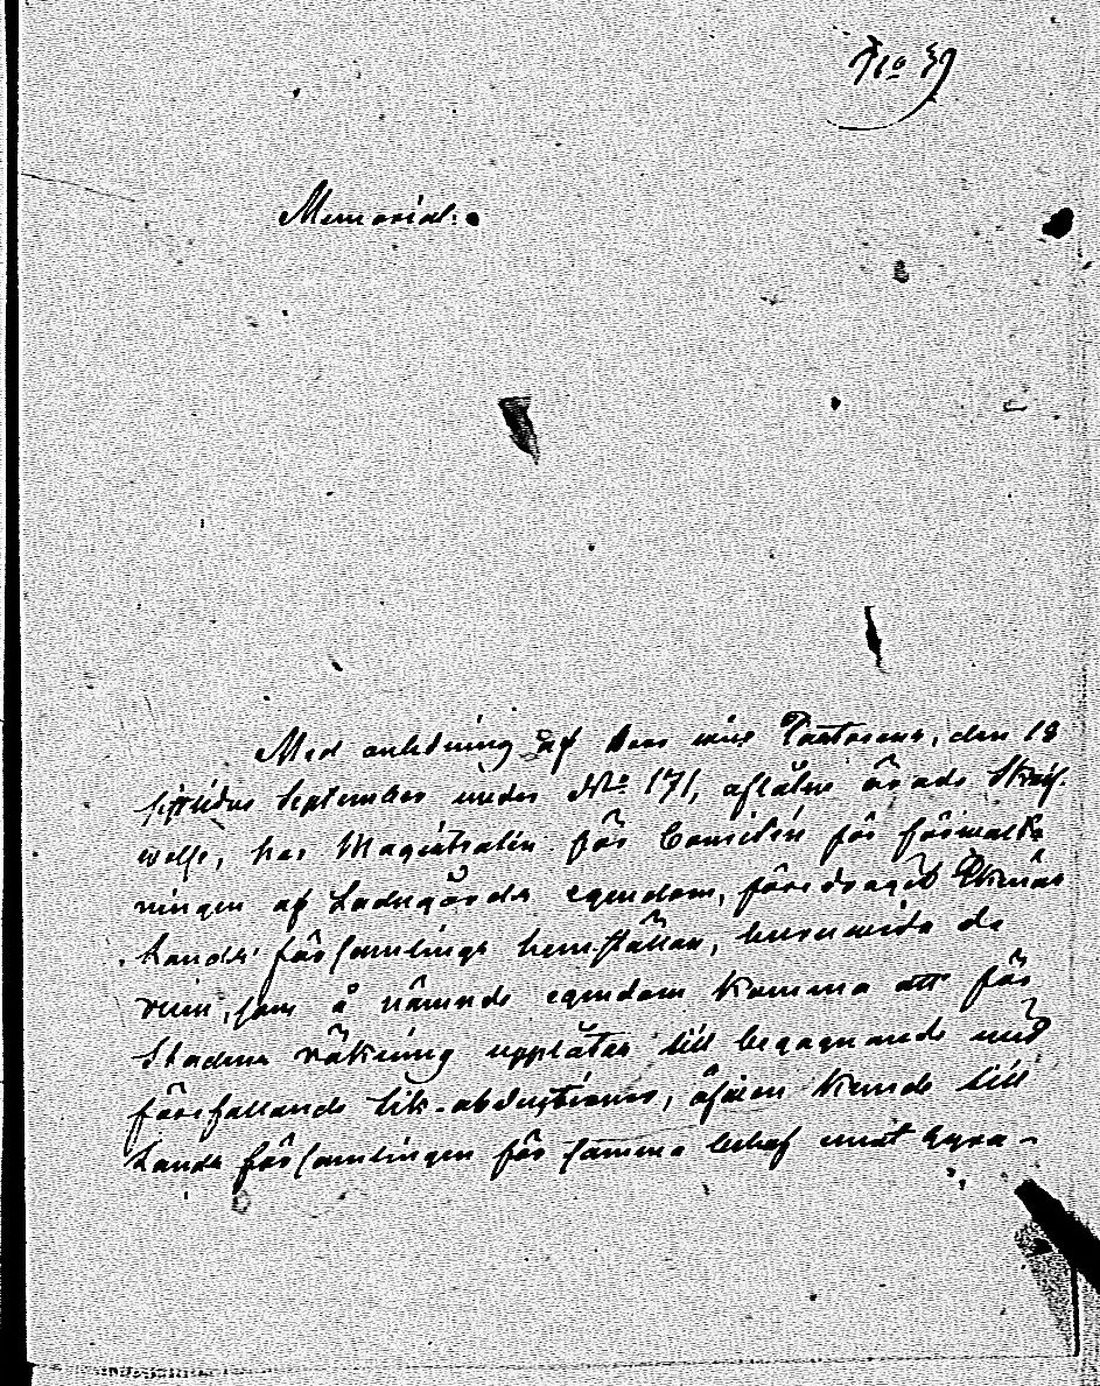 No 39
Memorial.
Med anledning af Herr vice Pastorens, den 18
sistlidne September under No 171, aflåtne ärade Skrif-
welse, har Magistraten för Comitén för förwalt-
ningen af Ladugårds egendom, föredragit Ekenäs
Lands församlings hemställan, huruvida de
rum, som å nämnde egendom komma att för
Stadens räkning upplåtas till begagnande vid
förefallande lik-obductioner, äfven kunde till
Lands församlingen för samma behof mot hyra